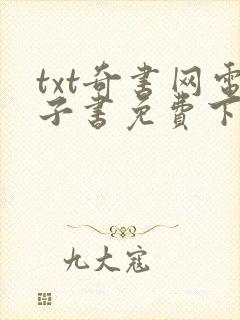 txt奇书网电
子书免费下
九大寇